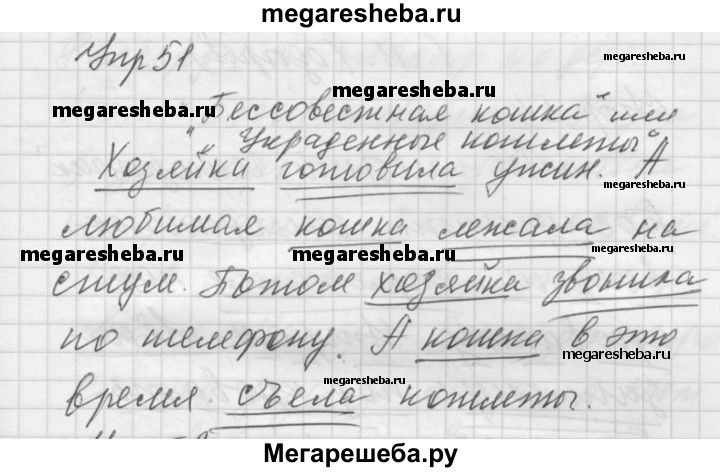 megaresheba.ru
Упр 51
megaresheba.ru
megaresheba.ru
"Бессовестная кошка" или
megaresheba.ru
"Украденные котлеты".
Хозяйка готовила ужин. А
megaresheba.ru
любимая кошка лежала на
megaresheba.ru
megaresheba.ru
стул. Потом хозяйка звонила
по телефону. А кошка в это
megaresheba.ru
megaresheba.ru
время съела котлеты.
Мегарешеба.ру